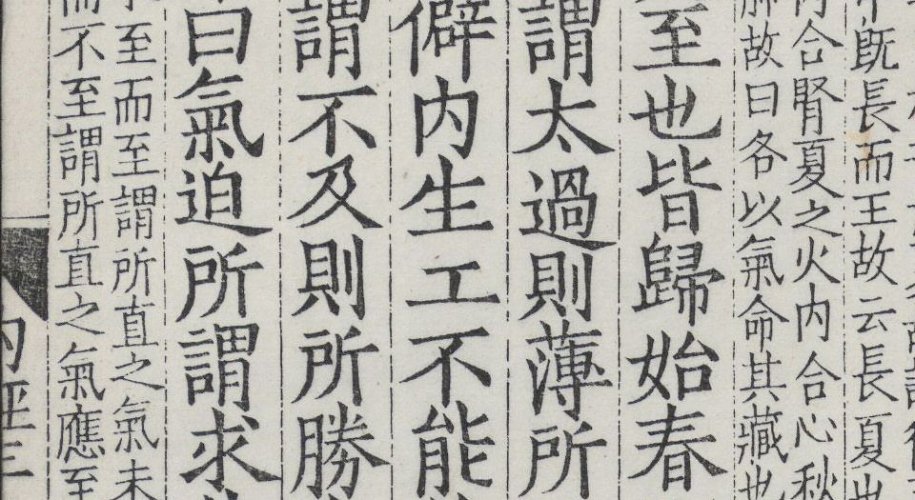 既長而王故云長夏
合腎夏之火内合心秋
故曰各以氣命其藏也
至也皆歸始春
謂太過則薄所
僻内生工不能
謂不及則所勝
曰氣迫所謂求
至而至謂所直之氣未
而不至謂所直之氣應至
内經三